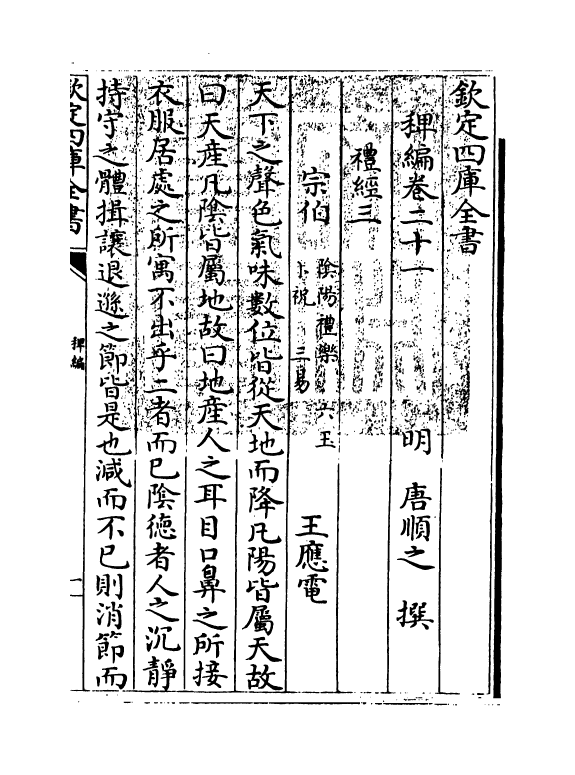 欽定四庫全書
稗編卷二十一　明　唐順之　撰
禮經三
宗伯　陰陽禮樂　六玉　卜祝　三易　王應電
天下之聲色氣味數位皆從天地而降凡陽皆屬天故
曰天産凡陰皆屬地故曰地産人之耳目口鼻之所接
衣服居處之所寓不出乎二者而已陰德者人之沉靜
持守之體揖讓退遜之節皆是也減而不已則消節而
欽定四庫全書
稗編
一